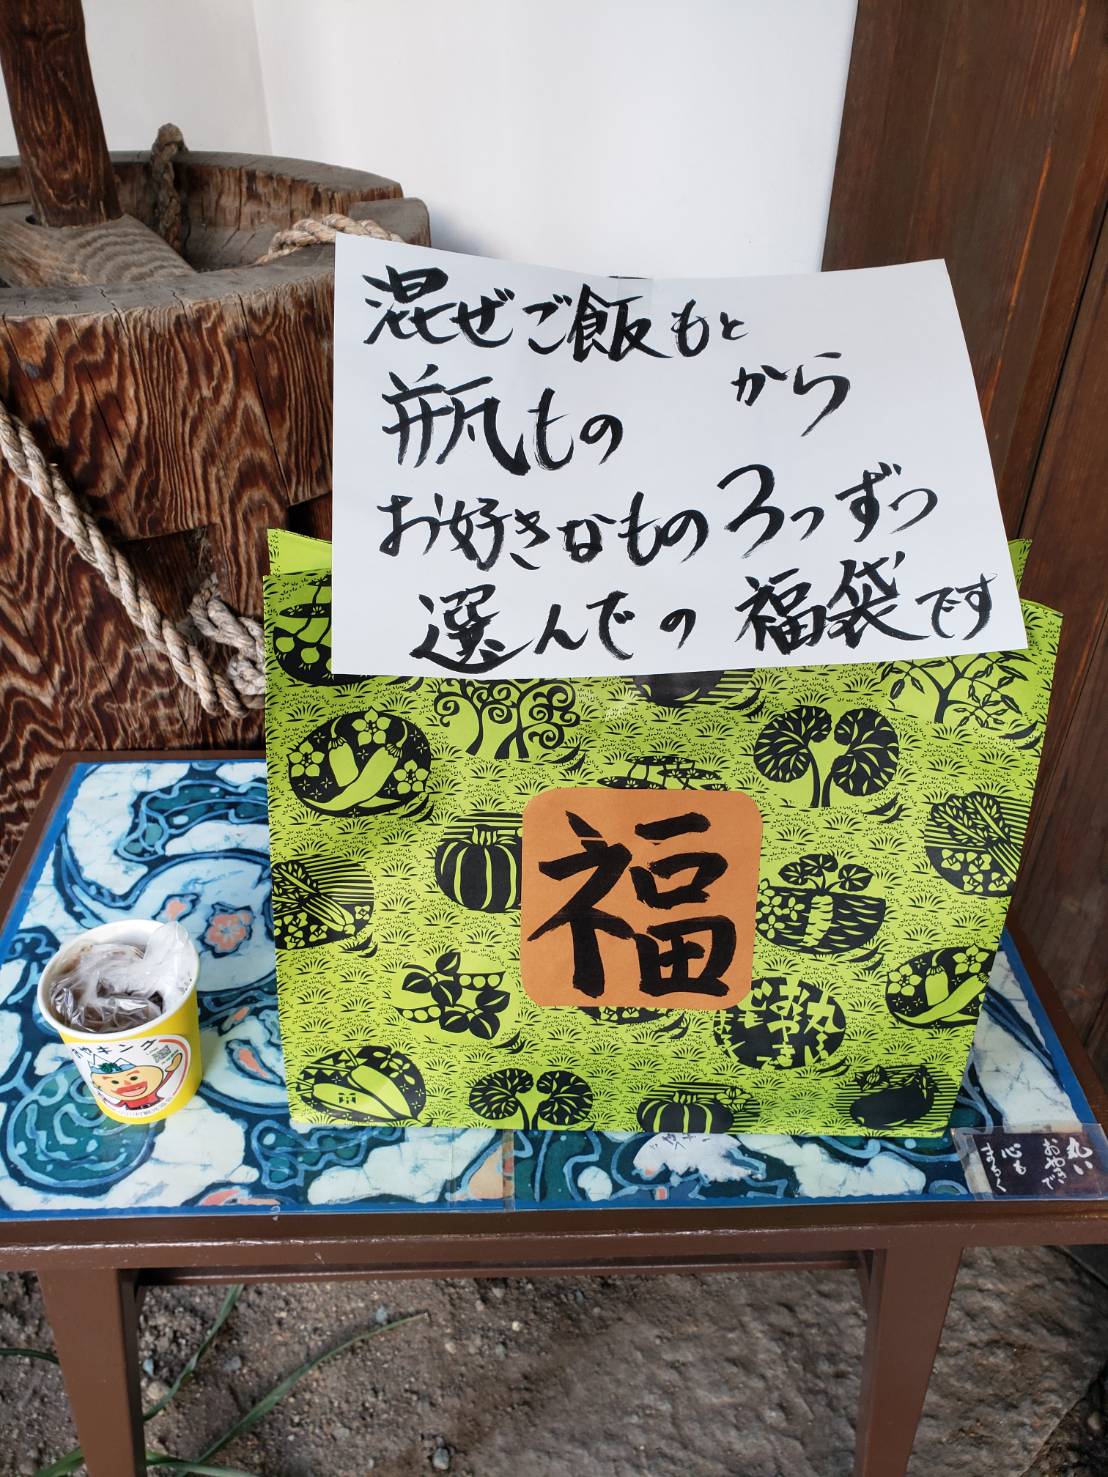 混ぜご飯もと
瓶もの
から
お好きなもの3つずつ
選んでの福袋です
福
丸い
おやきで
心も
まぁるく
キング